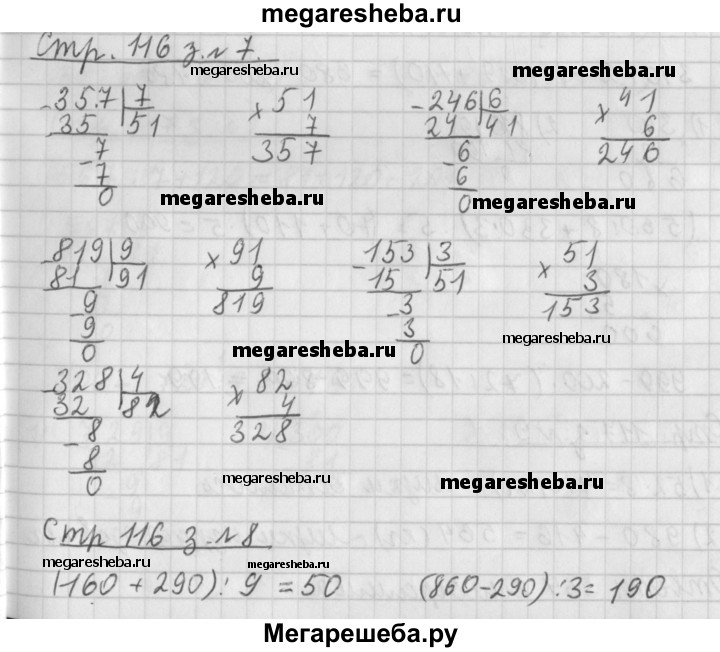 megaresheba.ru
Стр. 116 з. № 7.
megaresheba.ru
megaresheba.ru
- 357 | 7
35 51
- 7
7
0
× 51
7
357
- 246 | 6
24 41
- 6
6
0
× 41
6
246
megaresheba.ru
megaresheba.ru
- 819 | 9
81 91
- 9
9
0
× 91
9
819
- 153 | 3
15 51
- 3
3
0
× 51
3
153
megaresheba.ru
megaresheba.ru
- 328 | 4
32 82
- 8
8
0
× 82
4
328
megaresheba.ru
megaresheba.ru
Стр 116 з. № 8
megaresheba.ru
megaresheba.ru
(160 + 290) : 9 = 50
(860 - 290) : 3 = 190
Мегарешеба.ру